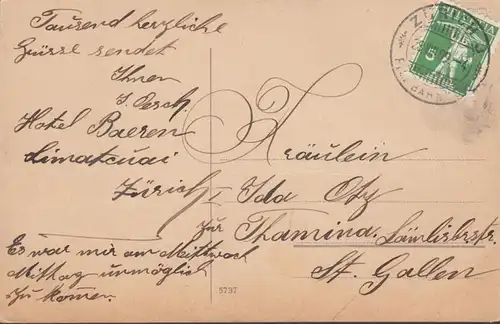 Tausend herzliche
Grüsse sendet
Ihnen
J. Oesch.
Hotel Baeren
Limatquai
Zürich I
Es war mir am Mittwoch
Mittag unmöglich
zu kommen.
Fräulein
Ida Otz
zur Thamina.
St. Gallen
5737
HELVETIA
5